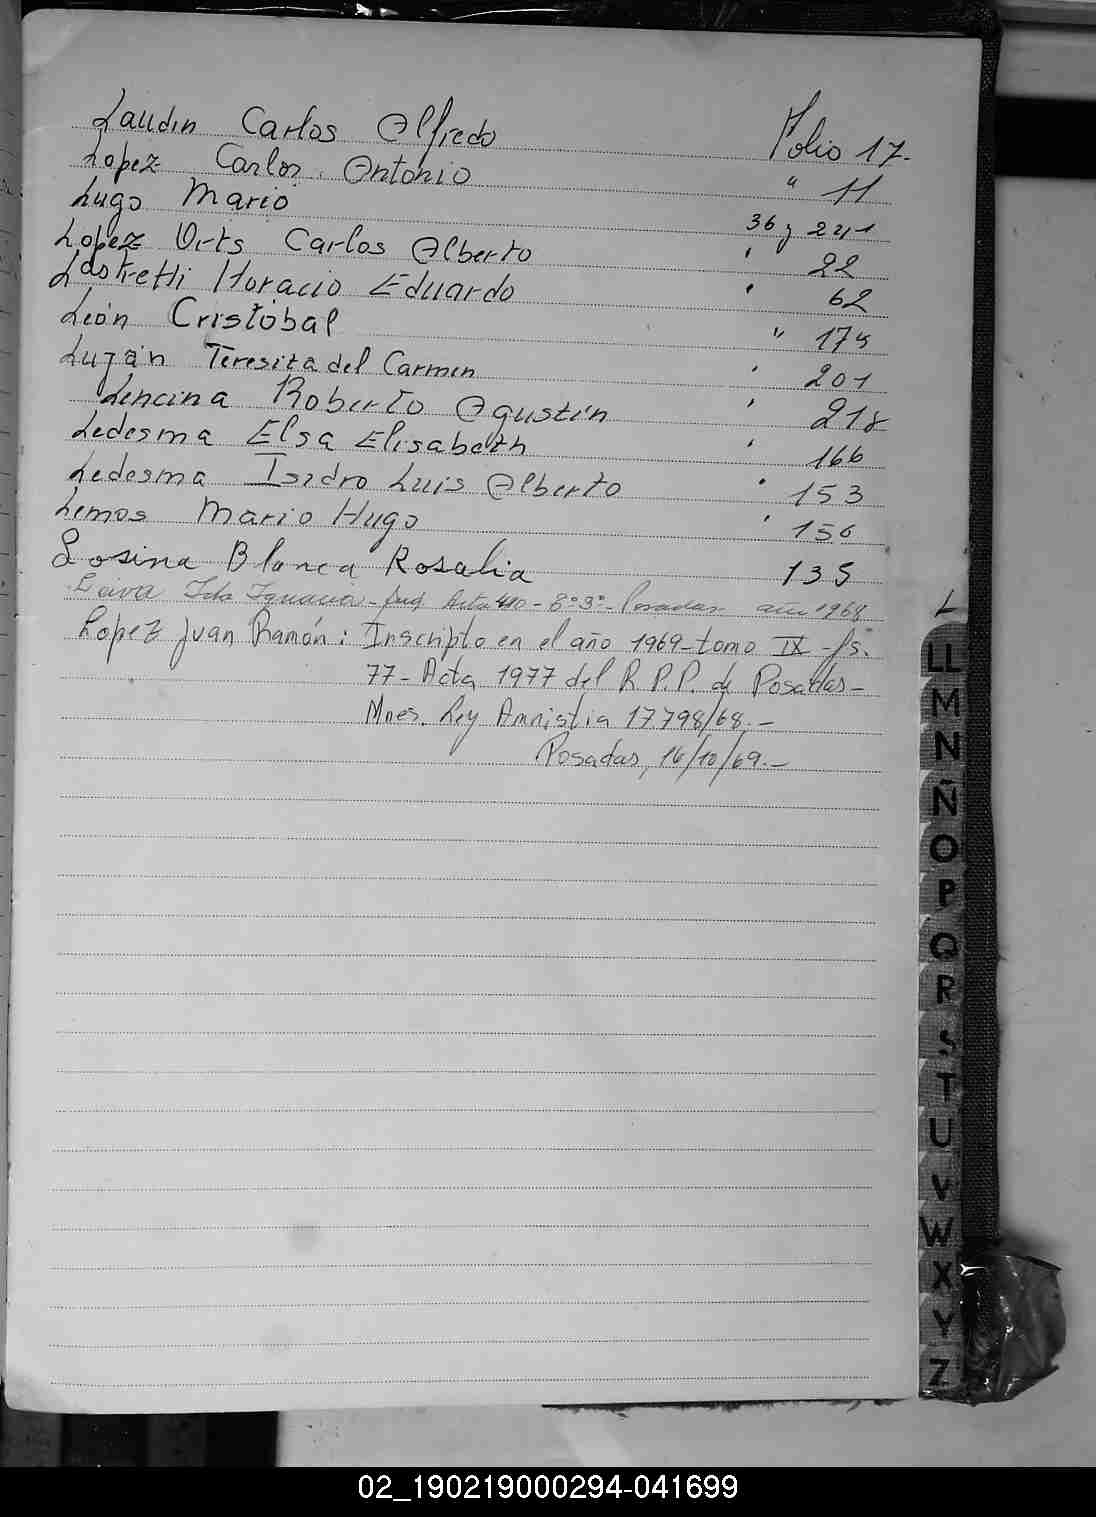 Laudin Carlos Alfredo Folio 17.
Lopez Carlos Antonio " 11
Lugo Mario 36 y 241
Lopez Orts Carlos Alberto " 22
Lastretti Horacio Eduardo " 62
León Cristóbal " 174
Luján Teresita del Carmen " 201
Lencina Roberto Agustín " 218
Ledesma Elsa Elisabeth " 166
Ledesma Isidro Luis Alberto " 153
Lemos Mario Hugo " 156
Losina Blanca Rosalia 135
Leiva Ignacia - Acta - Posadas año 1968
Lopez Juan Ramón: Inscripto en el año 1969 - tomo IX - fs.
77 - Acta 1977 del R.P.P. de Posadas -
Mnes. Ley Amnistia 17.798/68. -
Posadas, 16/10/69. -
L
LL
M
N
Ñ
O
P
Q
R
S
T
U
V
W
X
Y
Z
02_190219000294-041699